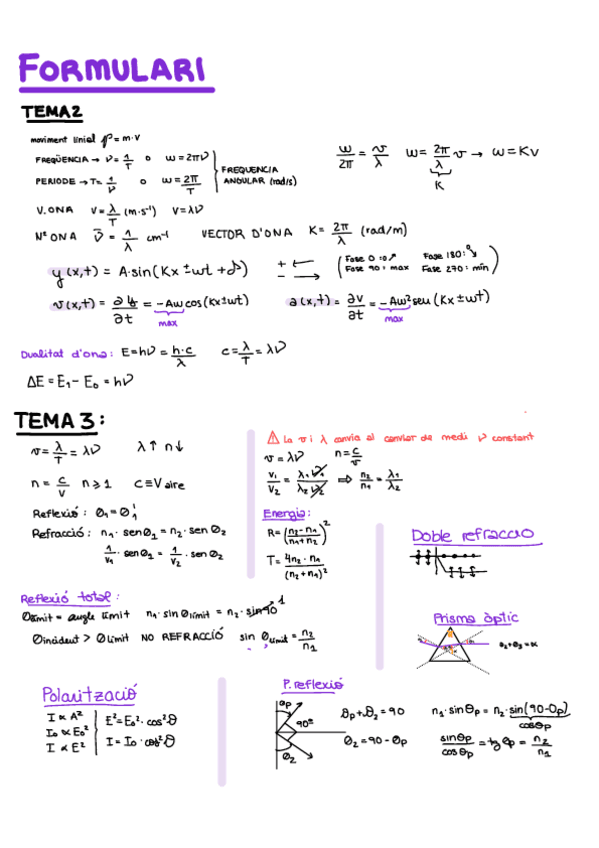 FORMULARI
TEMA 2
moviment linial p = m·v
FREQÜENCIA → ν = 1/T o ω = 2πν
PERIODE → T = 1/ν o ω = 2π/T
FREQUENCIA ANGULAR (rad/s)
ω/2π = v/λ ω = 2π/λ v → ω = Kv
K
V. ONA V = λ/T (m·s⁻¹) V = λν
Nº ONA ν̄ = 1/λ cm⁻¹ VECTOR D'ONA K = 2π/λ (rad/m)
y(x,t) = A·sin(Kx ± ωt + δ) + ← − →
Fase 0 :0↗ Fase 180: 0↘
Fase 90: max Fase 270: mín
v(x,t) = ∂y/∂t = −Aω cos(Kx ± ωt)
max
a(x,t) = ∂v/∂t = −Aω² seu (Kx ± ωt)
max
Dualitat d'ona: E = hν = h·c/λ c = λ/T = λν
ΔE = E₁ − E₀ = hν
TEMA 3:
v = λ/T = λν λ↑ n↓
n = c/v n ⩾ 1 c ≡ V aire
Reflexió: θ₁ = θ₁'
Refracció: n₁· sen θ₁ = n₂· sen θ₂
1/v₁ · sen θ₁ = 1/v₂ · sen θ₂
⚠ La v i λ canvia al canviar de medi ν constant
v = λν n = c/v
v₁/v₂ = λ₁ν/λ₂ν ⇒ n₂/n₁ = λ₁/λ₂
Energia:
R = (n₂−n₁/n₁+n₂)²
T = 4n₂·n₁/(n₂+n₁)²
Doble refracció
Reflexió total:
θlímit = angle límit n₁· sin θlímit = n₂· sin90 1
θincident > θlímit NO REFRACCIÓ sin θlímit = n₂/n₁
Prisma òptic
θ₂+θ₃=α
Polarització
I ∝ A²
I₀ ∝ E₀²
I ∝ E²
E² = E₀²· cos²θ
I = I₀ · cos²θ
P. reflexió
θp
90º
θ₂
θp + θ₂ = 90
θ₂ = 90 − θp
n₁· sin θp = n₂· sin(90−θp)
cosθp
sinθp/cosθp = tg θp = n₂/n₁